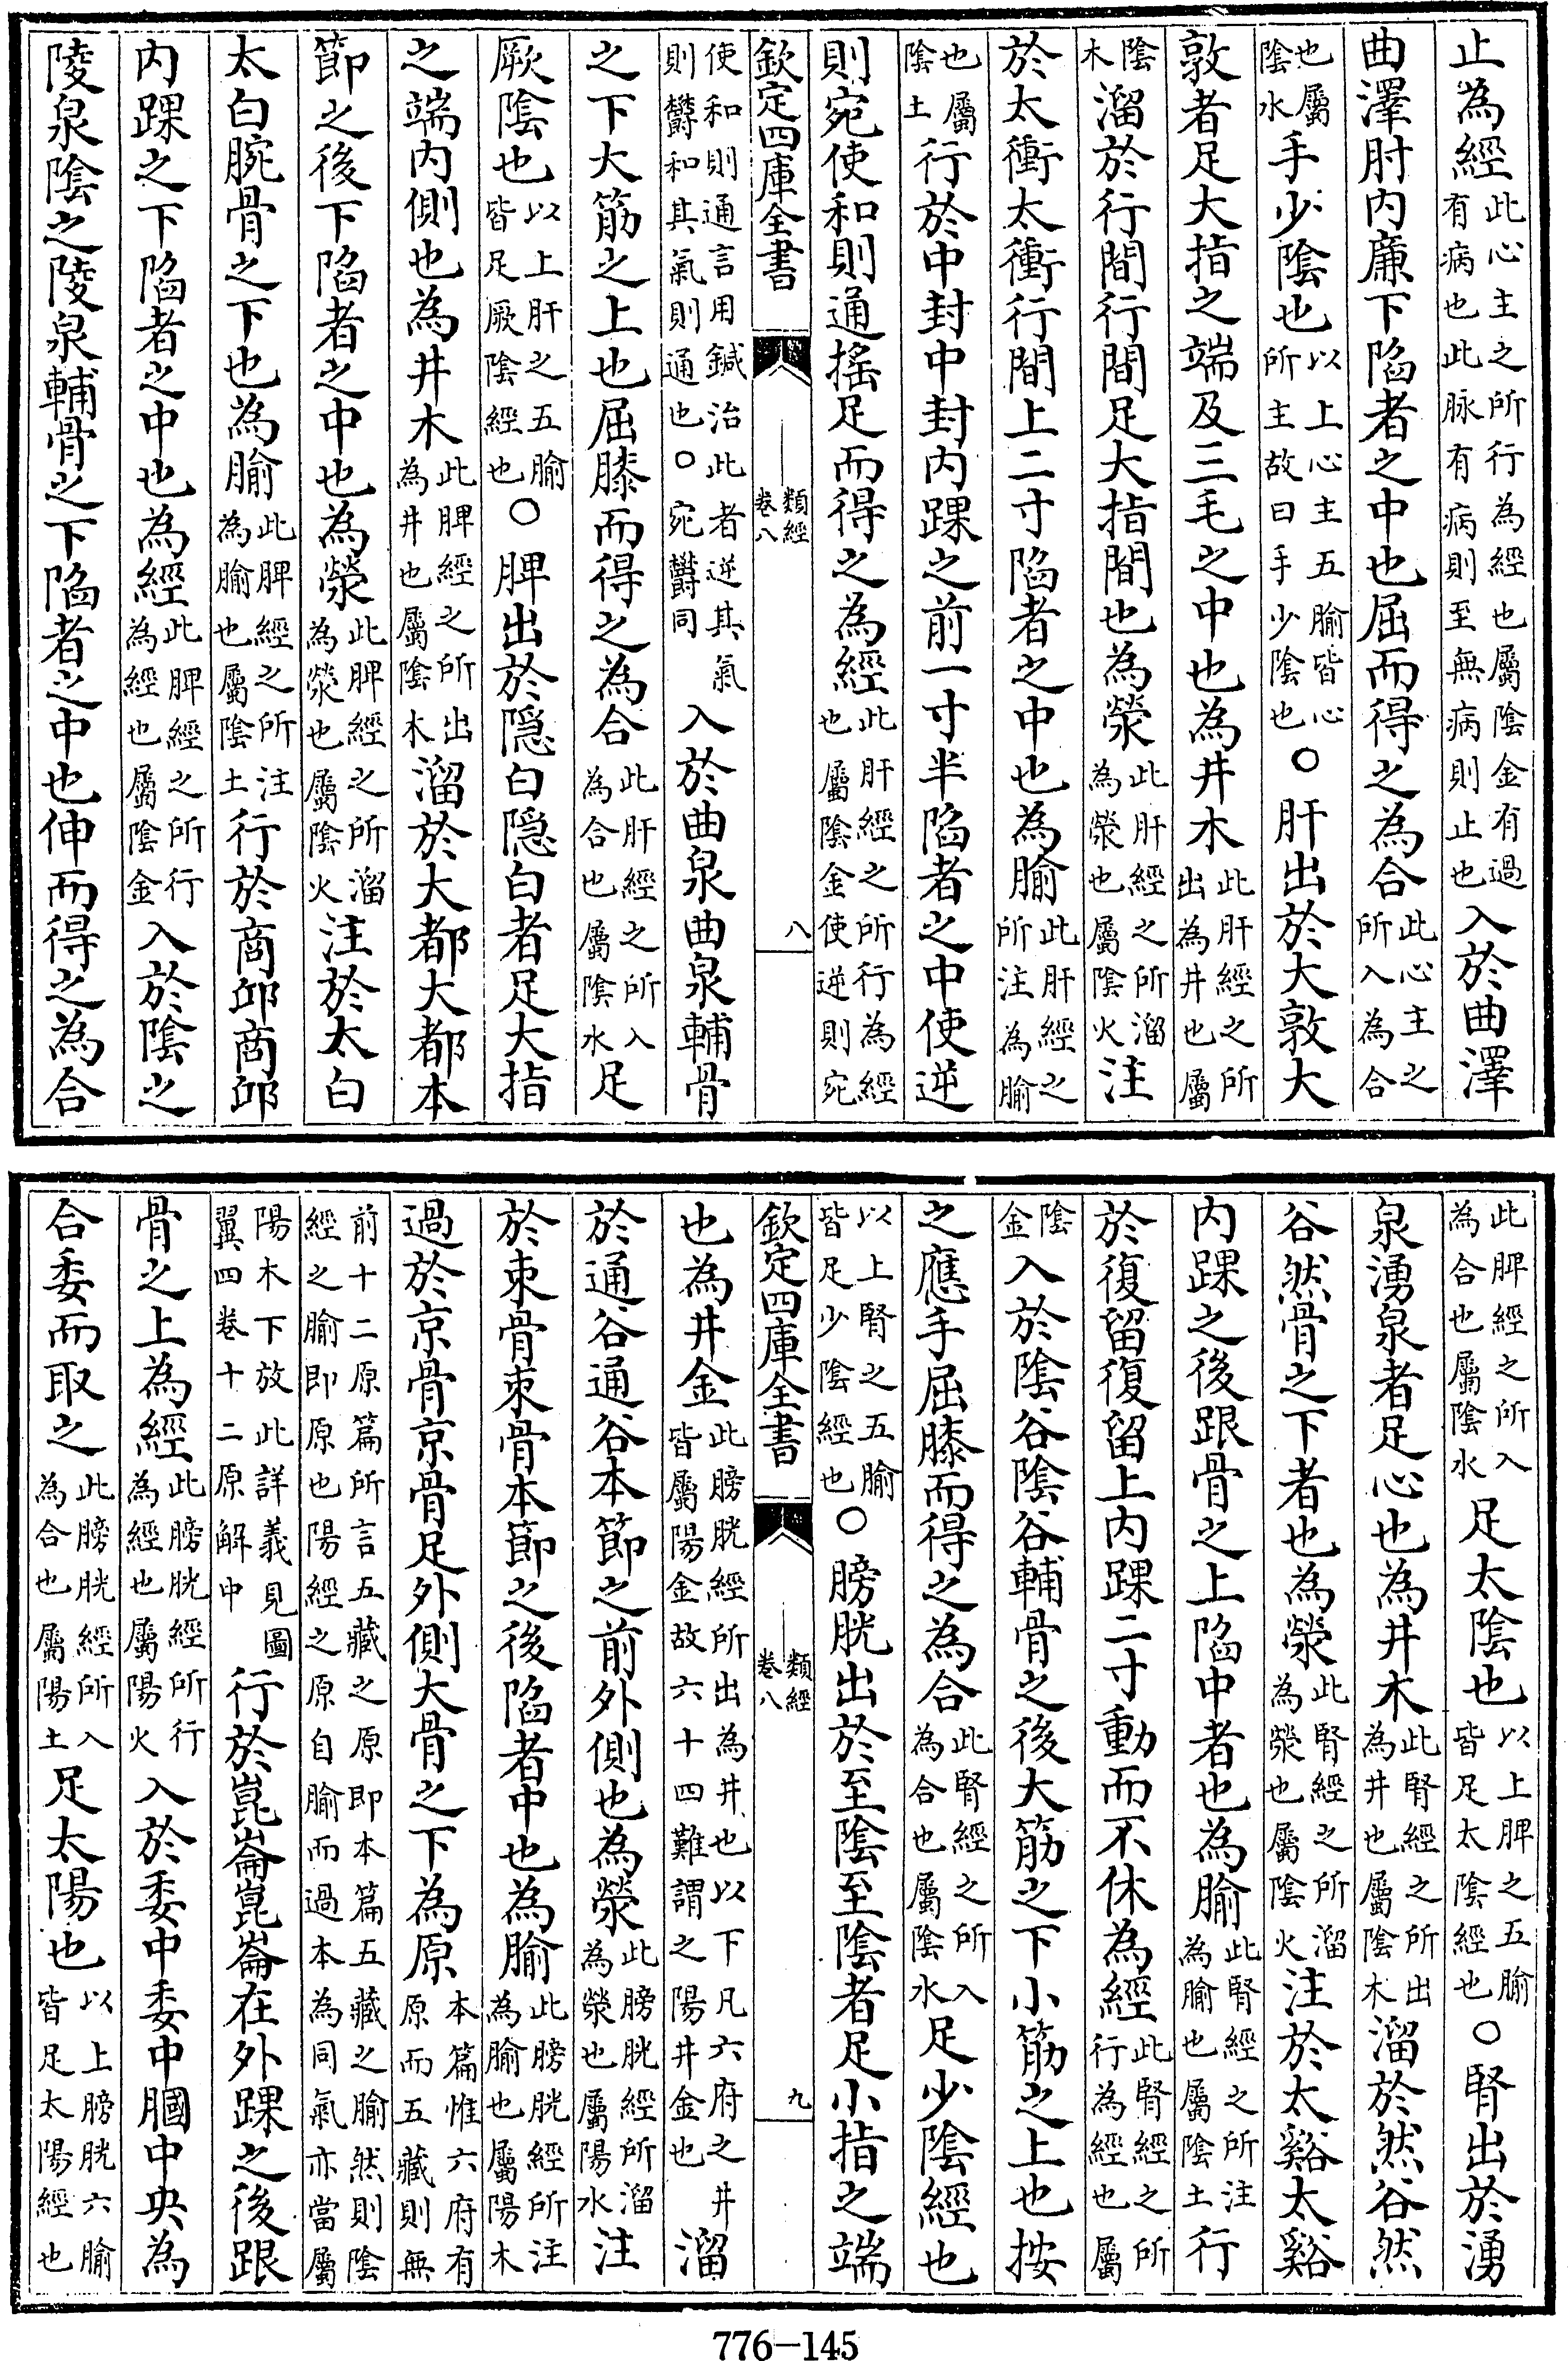 止為經此心主之所行為經也屬陰金有過有病也此脉有病則至無病則止也入於曲澤
曲澤肘内廉下陷者之中也屈而得之為合此心主之所入為合
也屬陰水手少隂也以上心主五腧皆心所主故曰手少陰也○肝出於大敦大
敦者足大指之端及三毛之中也為井木此肝經之所出為井也屬
陰木溜於行間行間足大指間也為滎此肝經之所溜為滎也屬陰火注
於太衝太衝行間上二寸陷者之中也為腧此肝經之所注為腧
也屬陰土行於中封中封内踝之前一寸半陷者之中使逆
則宛使和則通搖足而得之為經此肝經之所行為經也屬隂金使逆則宛
欽定四庫全書 類經 卷八 八
使和則通言用鍼治此者逆其氣則欝和其氣則通也○宛欝同入於曲泉曲泉輔骨
之下大筋之上也屈膝而得之為合此肝經之所入為合也屬隂水足
厥陰也以上肝之五腧皆足厥陰經也○脾出於隠白隠白者足大指
之端内側也為井木此脾經之所出為井也屬陰木溜於大都大都本
節之後下陷者之中也為滎此脾經之所溜為滎也屬隂火注於太白
太白腕骨之下也為腧此脾經之所注為腧也屬陰土行於商邱商邱
内踝之下陷者之中也為經此脾經之所行為經也屬隂金入於隂之
陵泉隂之陵泉輔骨之下陷者之中也伸而得之為合
此脾經之所入為合也屬陰水足太隂也以上脾之五腧皆足太陰經也○腎出於湧
泉湧泉者足心也為井木此腎經之所出為井也屬陰木溜於然谷然
谷然骨之下者也為滎此腎經之所溜為滎也屬陰火注於太谿太谿
内踝之後跟骨之上陷中者也為腧此腎經之所注為腧也屬陰土行
於復留復留上内踝二寸動而不休為經此腎經之所行為經也屬
陰金入於陰谷陰谷輔骨之後大筋之下小筋之上也按
之應手屈膝而得之為合此腎經之所入為合也屬陰水足少隂經也
以上腎之五腧皆足少隂經也○膀胱出於至隂至隂者足小指之端
欽定四庫全書 類經 卷八 九
也為井金此膀胱經所出為井也以下凡六府之井皆屬陽金故六十四難謂之陽井金也溜
於通谷通谷本節之前外側也為滎此膀胱經所溜為滎也屬陽水注
於束骨束骨本節之後陷者中也為腧此膀胱經所注為腧也屬陽木
過於京骨京骨足外側大骨之下為原本篇惟六府有原而五藏則無
前十二原篇所言五藏之原即本篇五藏之腧然則陰經之腧即原也陽經之原自腧而過本為同氣亦當屬
陽木下放此詳義見圖翼四卷十二原解中行於崑崙崑崙在外踝之後跟
骨之上為經此膀胱經所行為經也屬陽火入於委中委中膕中央為
合委而取之此膀胱經所入為合也屬陽土足太陽也以上膀胱六腧皆足太陽經也
776-145